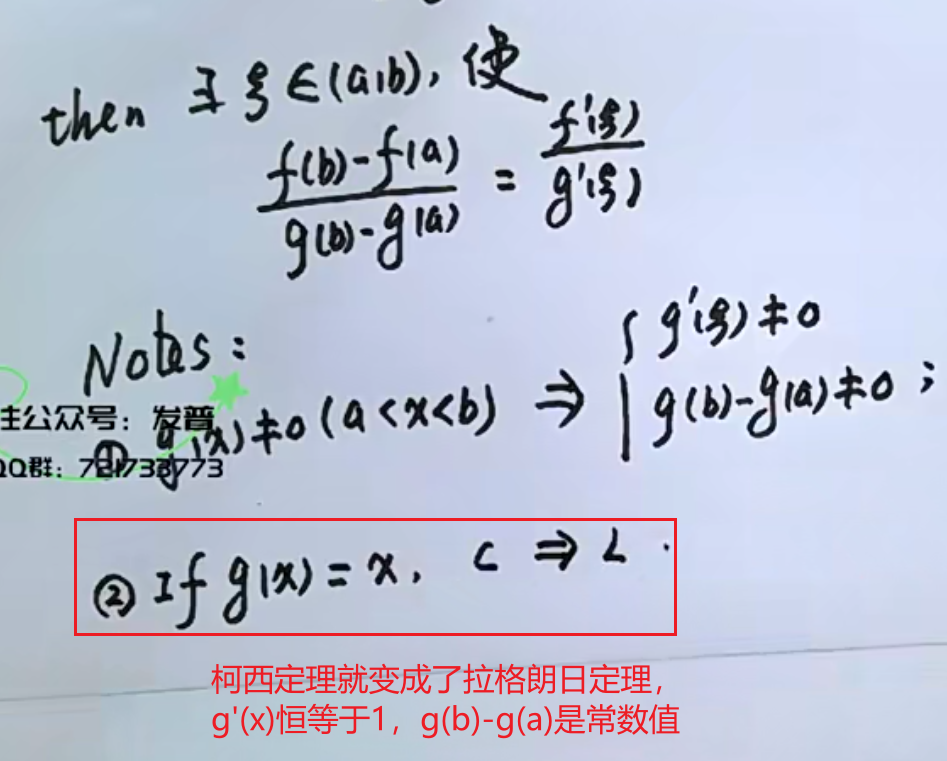 then ∃ ξ ∈ (a,b), 使
f(b)-f(a) / g(b)-g(a) = f'(ξ) / g'(ξ)
Notes:
① g'(x)≠0 (a<x<b) ⇒ { g'(ξ)≠0
g(b)-g(a)≠0 ;
注公众号：发普
QQ群：721733773
② If g(x)=x, C ⇒ L .
柯西定理就变成了拉格朗日定理，
g'(x)恒等于1，g(b)-g(a)是常数值